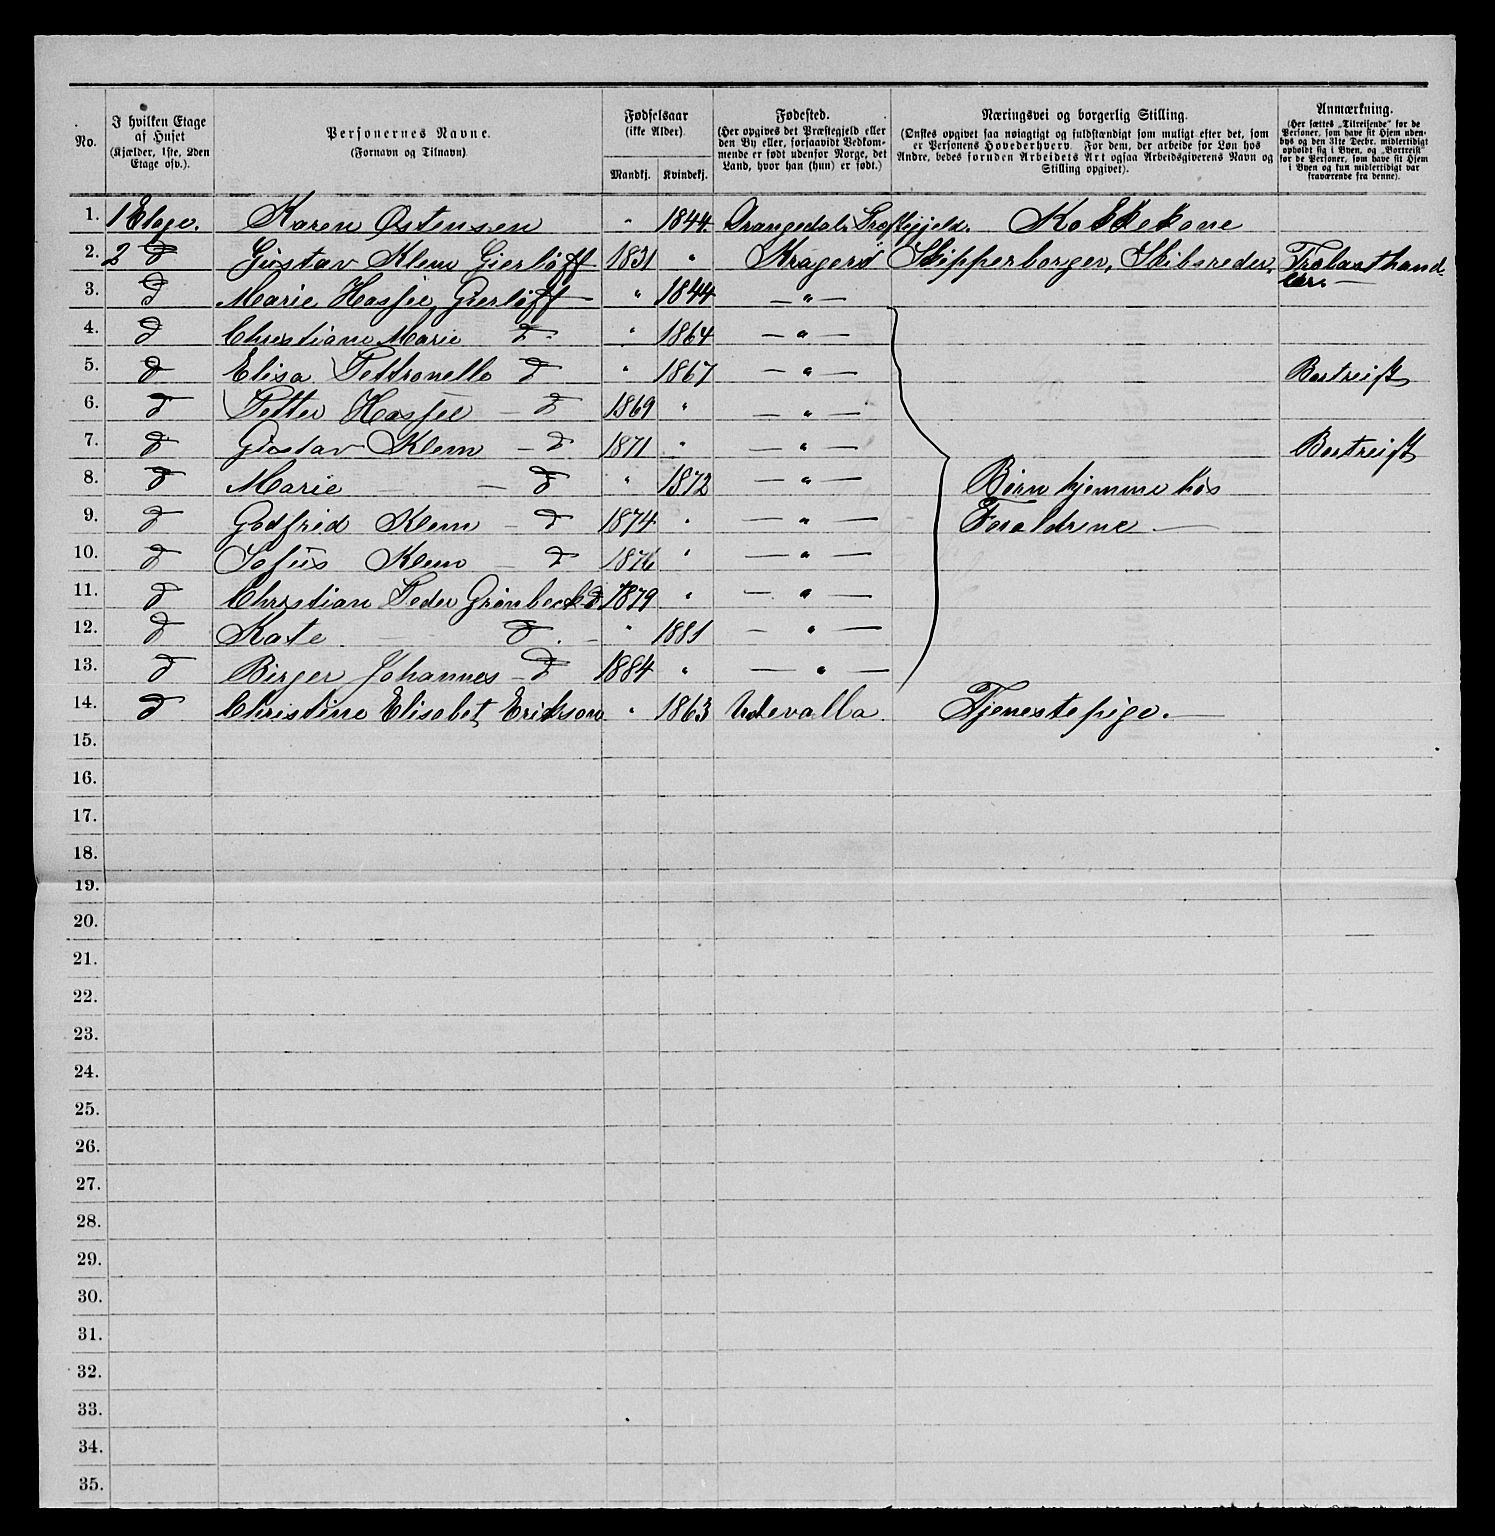 No.
I hvilken Etage
af Huset
(Kjælder, 1ste, 2den
Etage osv.).
Personernes Navne.
(Fornavn og Tilnavn).
Fødselsaar
(ikke Alder).
Mandkj. Kvindekj.
Fødested.
(Her opgives det Præstegjeld eller
den By eller, forsaavidt Vedkom-
mende er født udenfor Norge, det
Land, hvor han (hun) er født.)
Næringsvei og borgerlig Stilling.
(Ønskes opgivet saa nøiagtigt og fuldstændigt som muligt efter det, som
er Personens Hovederhverv. For dem, der arbeide for Løn hos
Andre, bedes foruden Arbeidets Art ogsaa Arbeidsgiverens Navn og
Stilling opgivet).
Anmærkning.
(Her sættes „Tilreisende" for de
Personer, som have sit Hjem uden-
bys og den 31te Decbr. midlertidigt
opholdt sig i Byen, og „Bortreist"
for de Personer, som have sit Hjem
i Byen og kun midlertidigt var
fraværende fra denne).
1. 1 Etage. Karen Østensen " 1844. Drangedals Præstegjeld. Kokkekone
2. 2 d Gustav Klem Gierløff 1831 " Kragerø Skipperborger, Skibsreder, Trælasthand-
ler. —
3. d Marie Hasfee Gierløff — " 1844 — " —
4. d Christiane Marie d " 1864 — " —
5. d Elisa Pettronelle d " 1867 — " — Bortreist
6. d Petter Hasfee — d 1869 " — " —
7. d Gustav Klem — d 1871 " — " — Bortreist
8. d Marie — d " 1872 — " — Børn hjemme hos
9. d Godfred Klem — d 1874 " — " — Forældrene —
10. d Sofus Klem — d 1876 " — " —
11. d Christian Peder Grønbech d 1879 " — " —
12. d Kate — d. — " 1881 — " —
13. d Birger Johannes — d 1884 " — " —
14. d Christine Elisabet Erikson " 1863 Udevalla Tjenestepige. —
15.
16.
17.
18.
19.
20.
21.
22.
23.
24.
25.
26.
27.
28.
29.
30.
31.
32.
33.
34.
35.